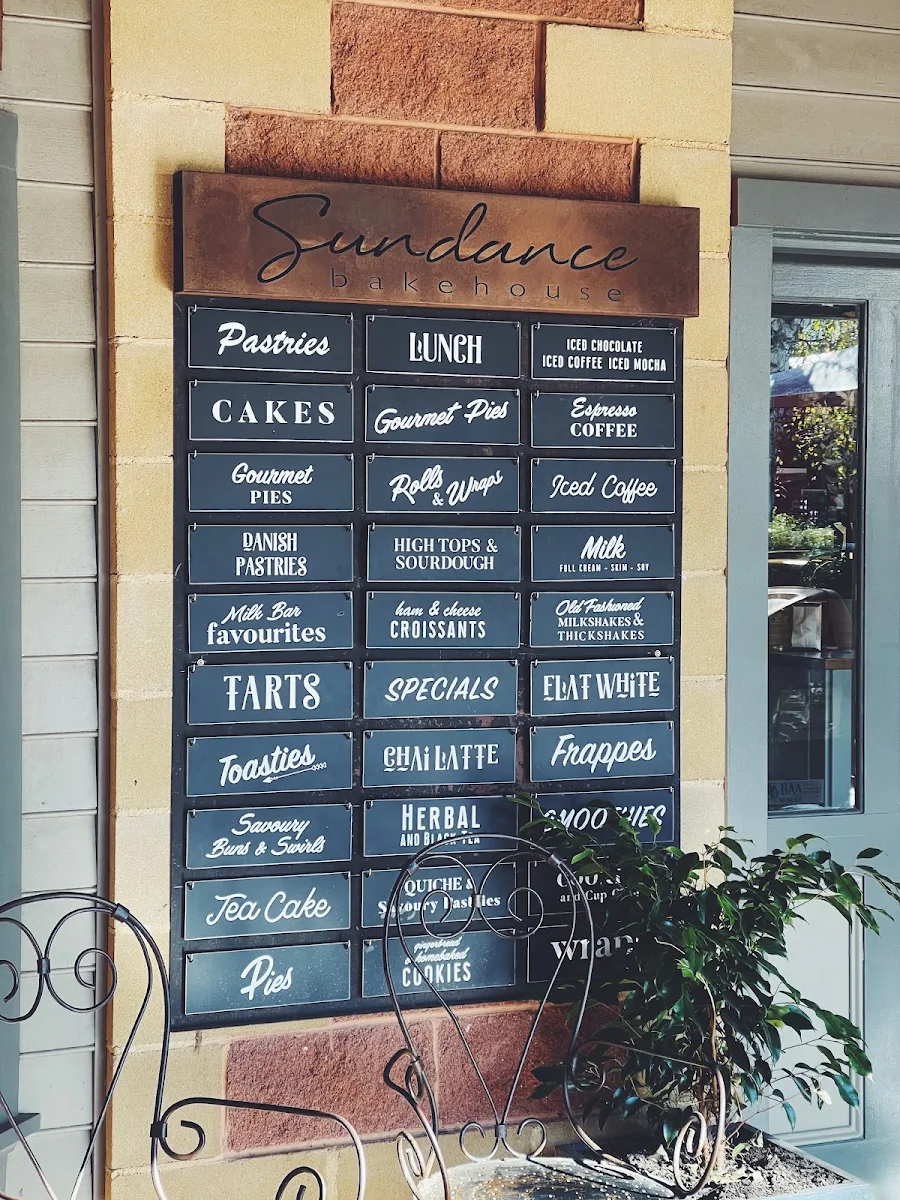 Sundance
bakehouse
Pastries
CAKES
Gourmet
PIES
DANISH
PASTRIES
Milk Bar
favourites
TARTS
Toasties
Savoury
Buns & Swirls
Tea Cake
Pies
LUNCH
Gourmet Pies
Rolls
& Wraps
HIGH TOPS &
SOURDOUGH
ham & cheese
CROISSANTS
SPECIALS
CHAI LATTE
HERBAL
AND BLACK TEA
QUICHE &
Savoury Pastries
gingerbread
& homebaked
COOKIES
ICED CHOCOLATE
ICED COFFEE ICED MOCHA
Espresso
COFFEE
Iced Coffee
Milk
FULL CREAM - SKIM - SOY
Old Fashioned
MILKSHAKES &
THICKSHAKES
FLAT WHITE
Frappes
SMOOTHIES
and Cup
wraps